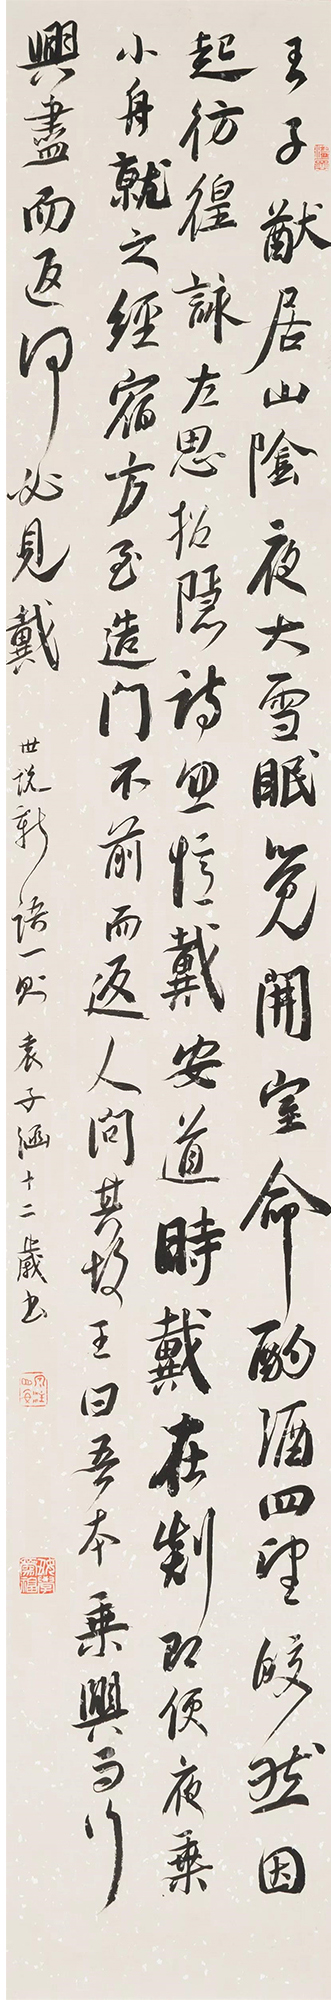 王子猷居山陰夜大雪眠覺開室命酌酒四望皎然因
起彷徨詠左思招隱詩忽憶戴安道時戴在剡即便夜乘
小舟就之經宿方至造門不前而返人問其故王曰吾本乘興而行
興盡而返何必見戴
世説新語一則 袁子涵十二歲書